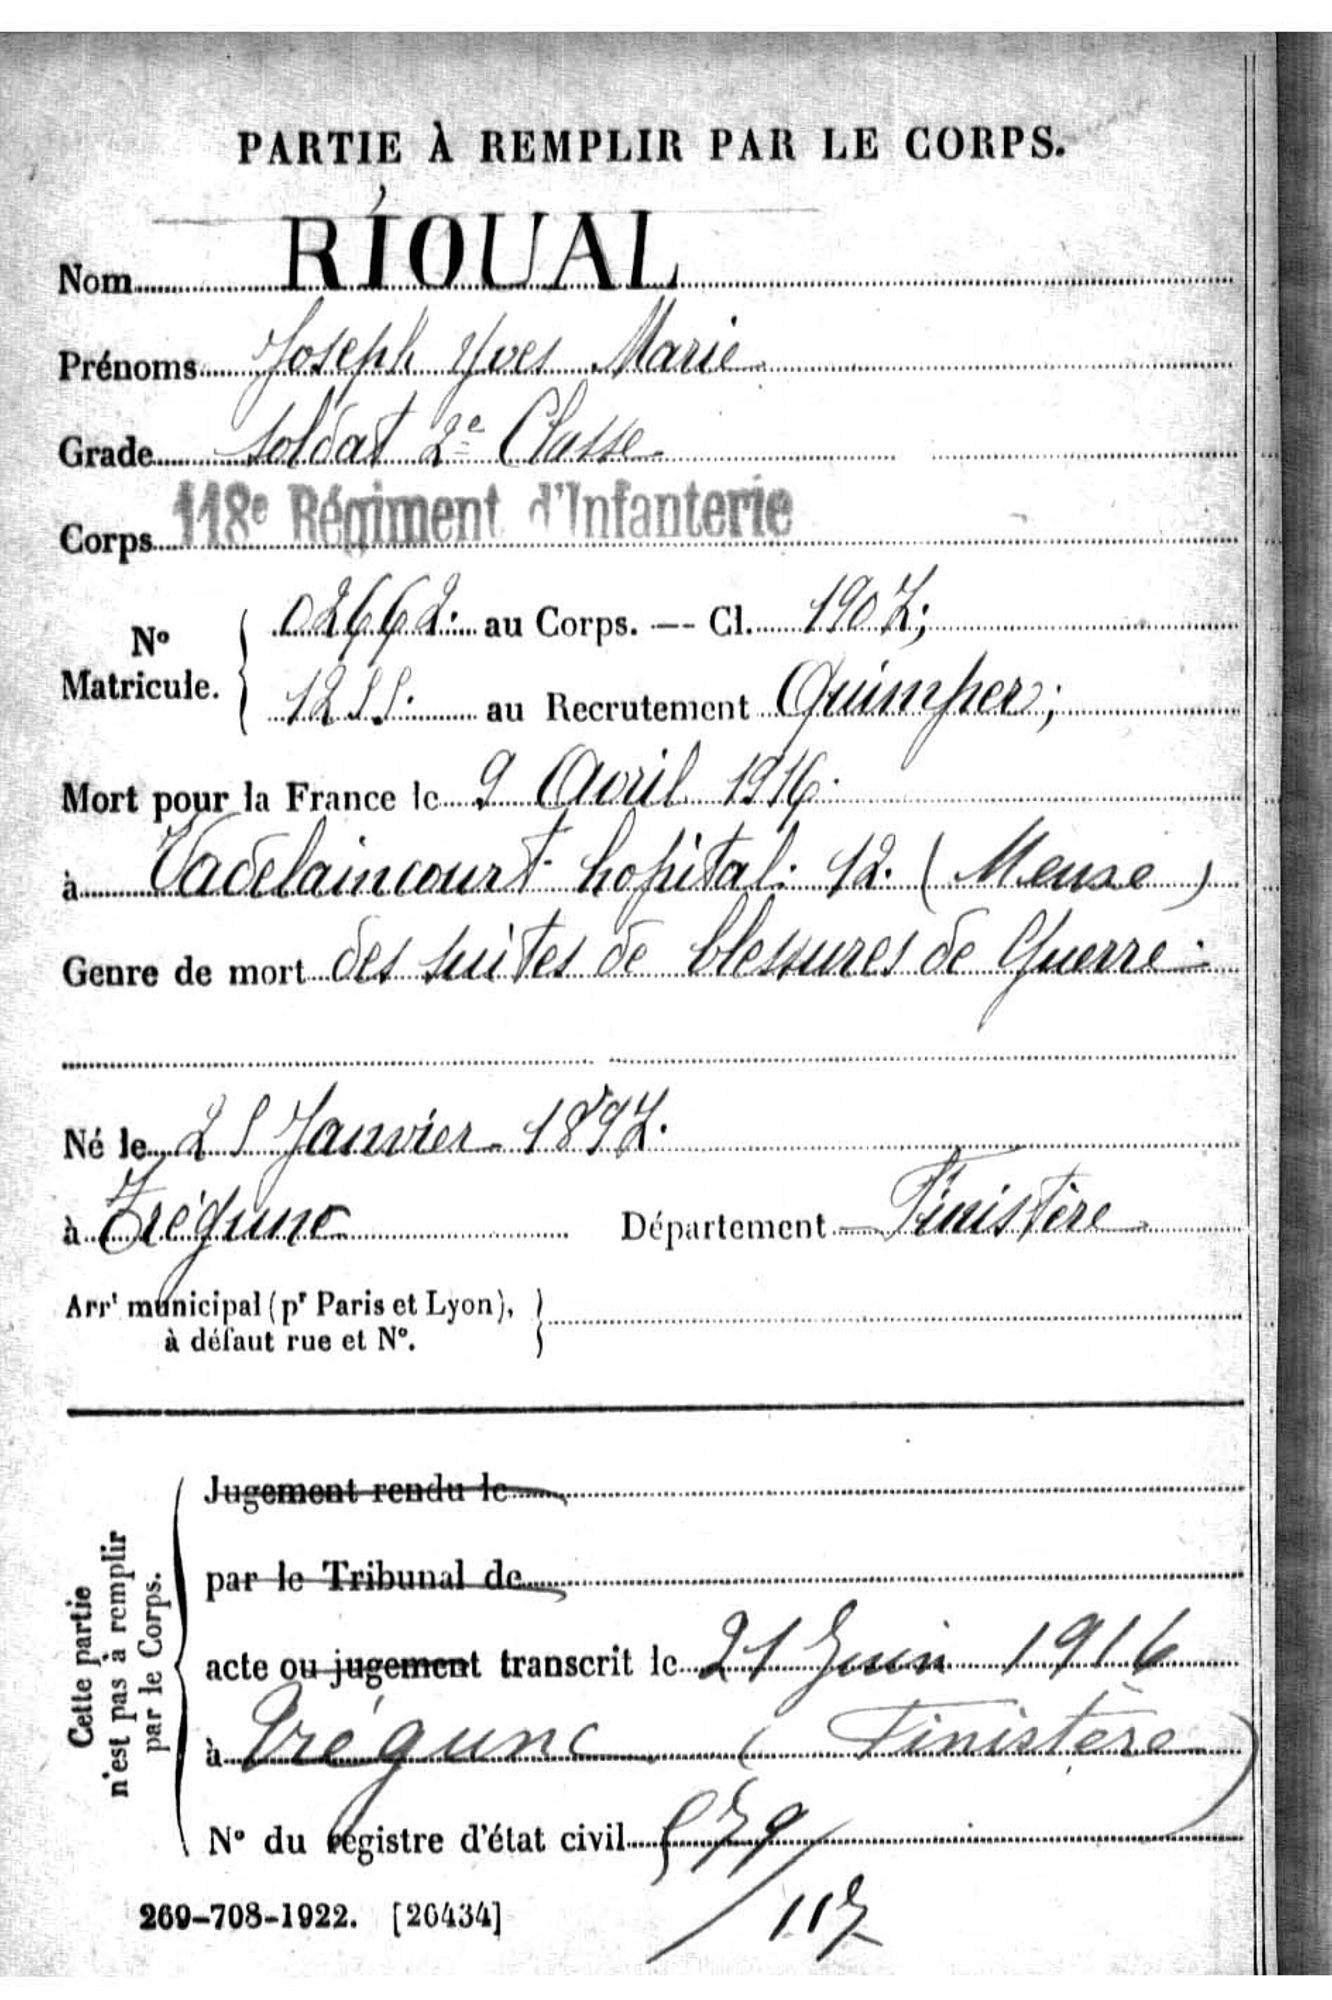 PARTIE À REMPLIR PAR LE CORPS.
Nom RIOUAL
Prénoms Joseph Yves Marie
Grade soldat 2e Classe
Corps 118e Régiment d'Infanterie
No Matricule. { 02662. au Corps. — Cl. 1907;
1255. au Recrutement Quimper;
Mort pour la France le 9 Avril 1916.
à Vadelaincourt hopital. 12. (Meuse)
Genre de mort des suites de blessures de Guerre.
Né le 25 Janvier 1897.
à Trégunc Département Finistère
Arrt municipal (pr Paris et Lyon),
à défaut rue et No.
Cette partie
n'est pas à remplir
par le Corps.
Jugement rendu le
par le Tribunal de
acte ou jugement transcrit le 21 Juin 1916
à Trégunc (Finistère)
No du registre d'état civil 579/
117
269-708-1922. [26434]